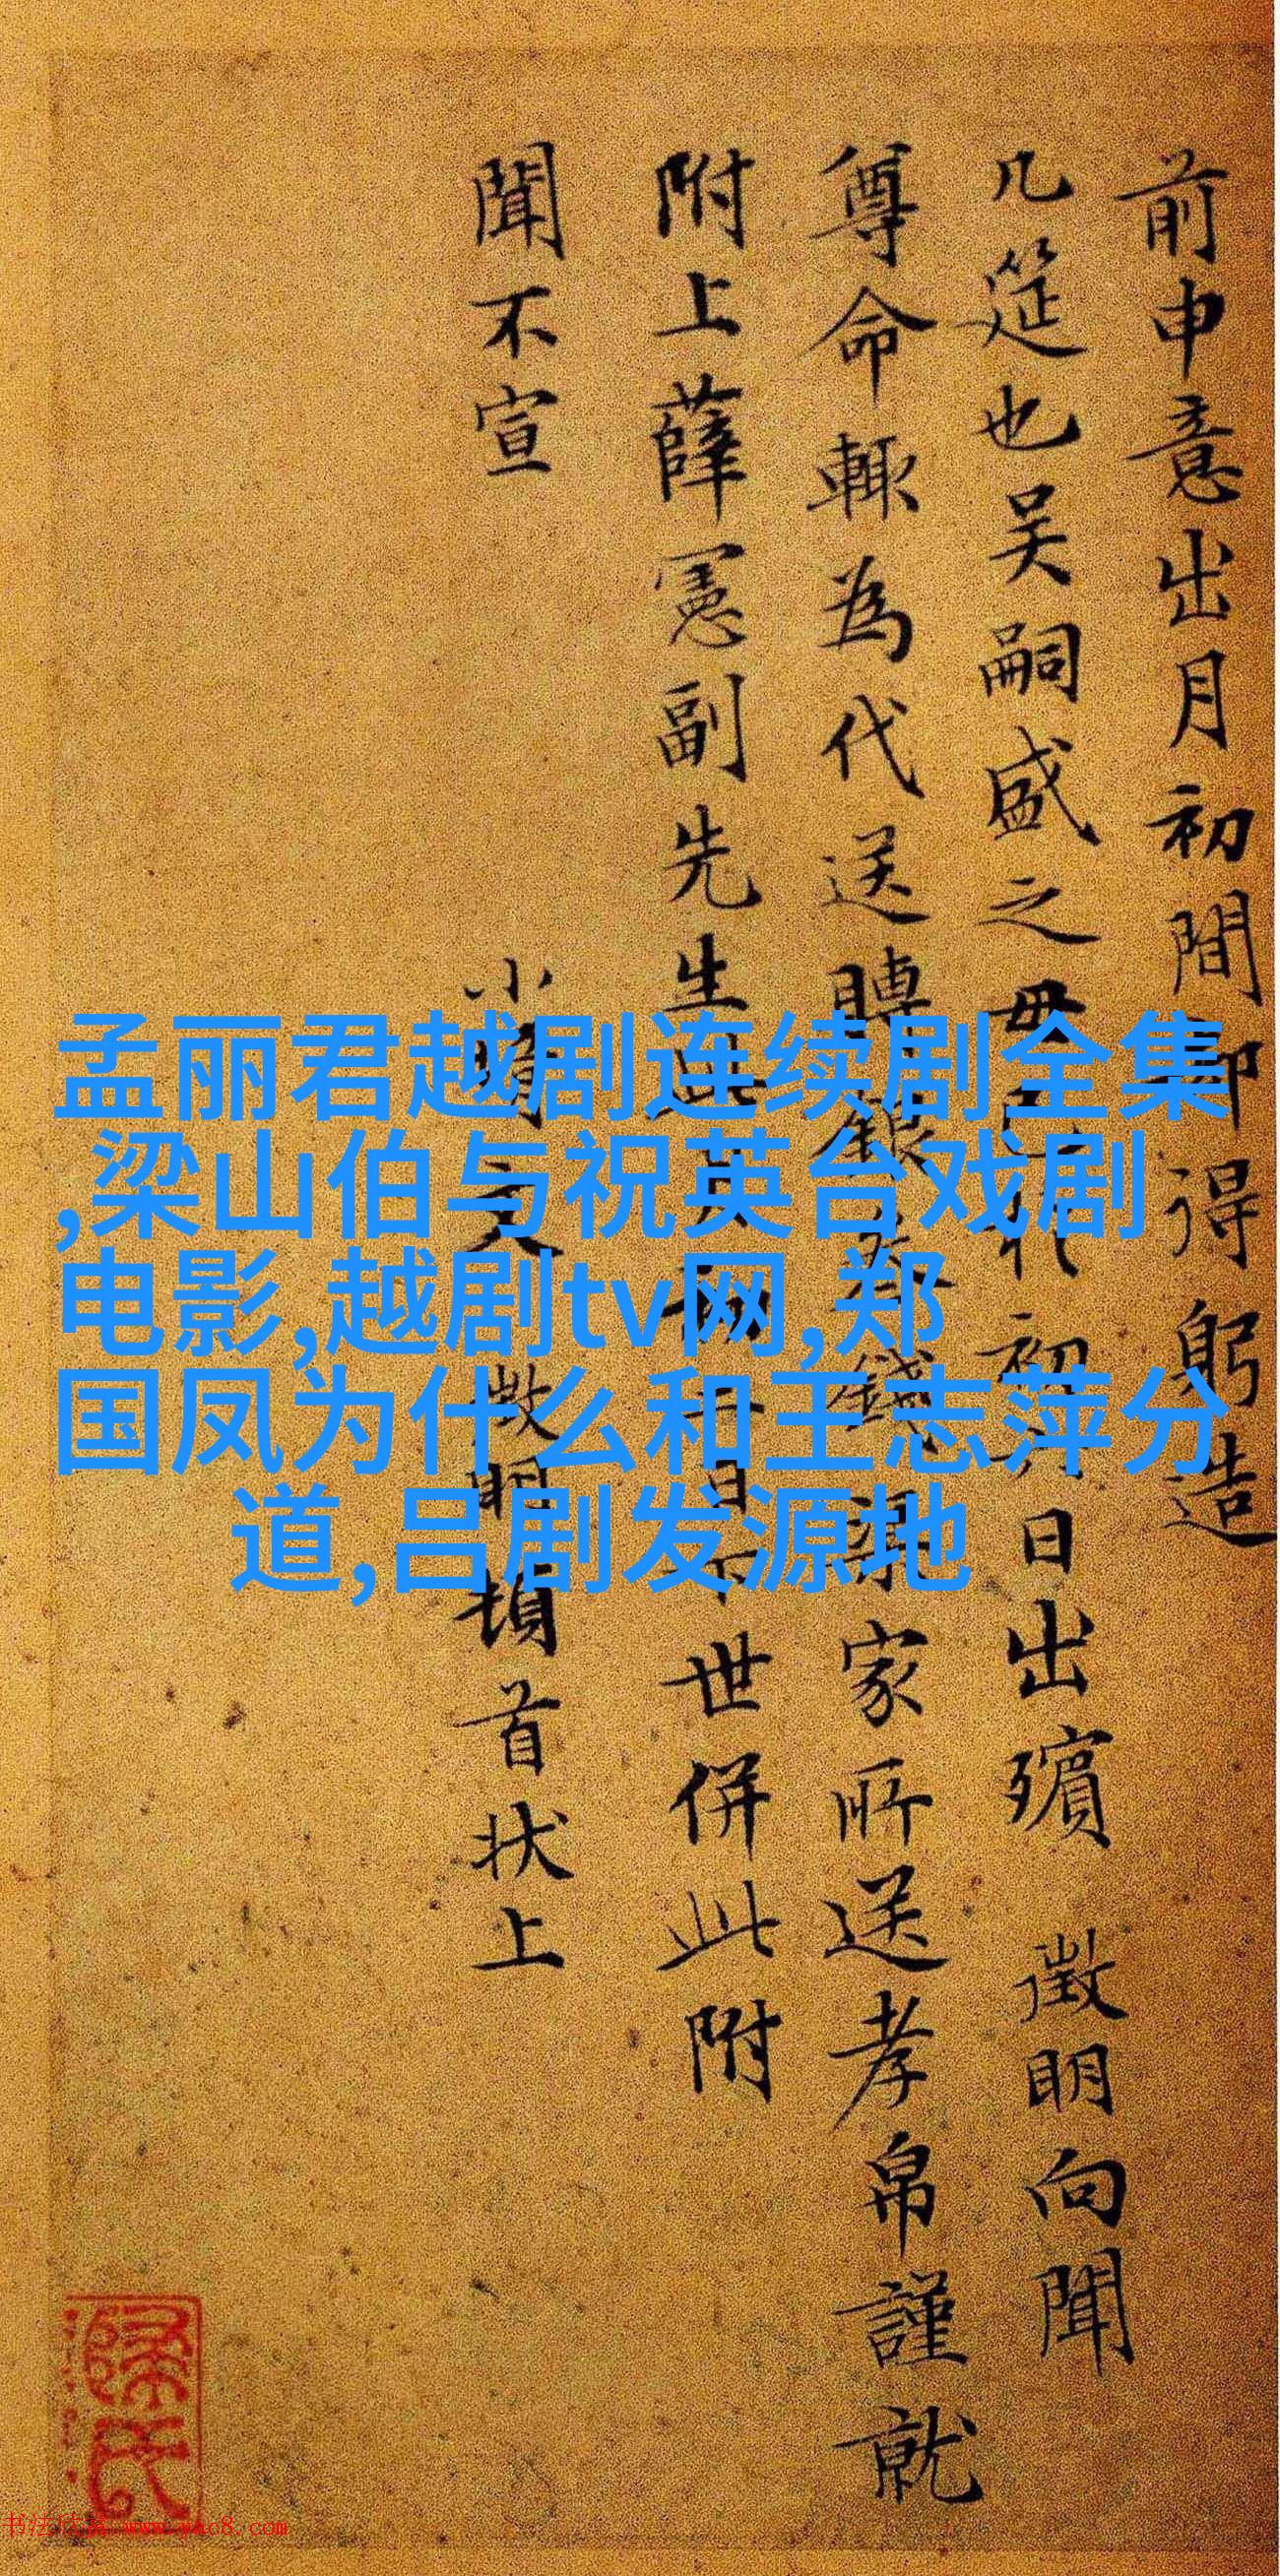 前申意出月初間即得躬造
几筵也吴嗣盛之毋初九日出殯 徵明向聞
尊命輒為代送聘銀錢家所送孝帛謹就
附上薛憲副先生此世併此附
聞不宣
小文徵明頓首状上
孟丽君越剧连续剧全集
,梁山伯与祝英台戏剧
电影,越剧tv网,郑
国凤为什么和王志萍分
道,吕剧发源地
书法欣赏 www.yac8.com